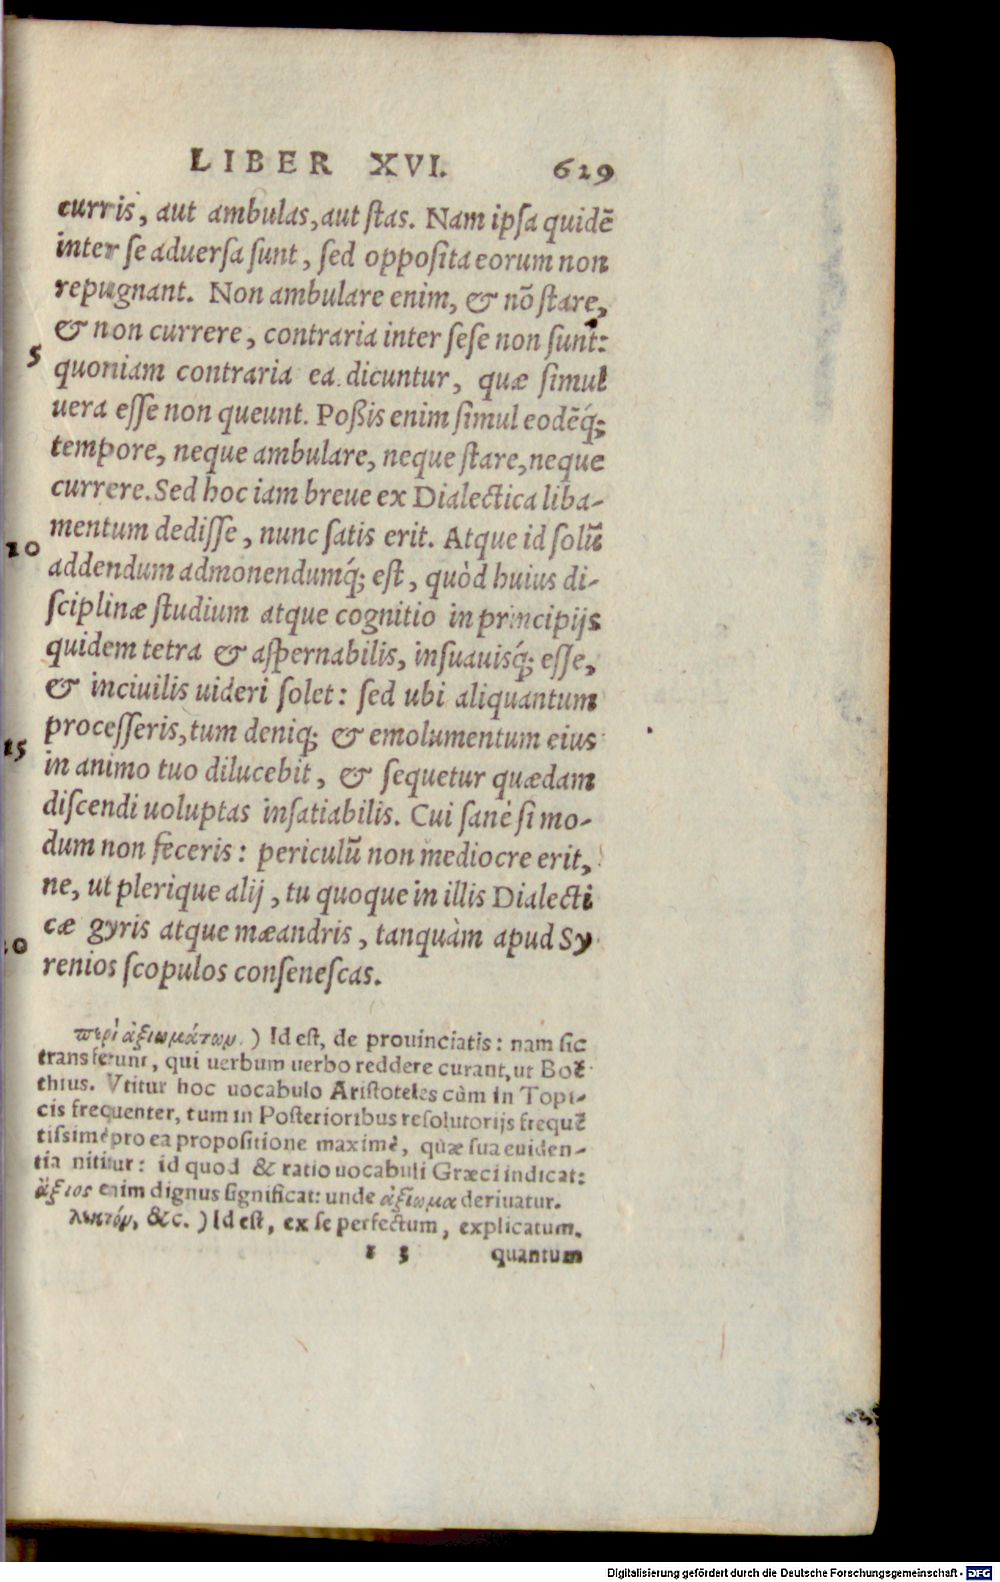 LIBER XVI. 629
curris, aut ambulas, aut ſtas. Nam ipſa quidẽ
inter ſe aduerſa ſunt, ſed oppoſita eorum non
repugnant. Non ambulare enim, & nõ ſtare,
& non currere, contraria inter ſeſe non ſunt:
5 quoniam contraria ea dicuntur, quæ ſimul
uera eſſe non queunt. Poßis enim ſimul eodẽq́;
tempore, neque ambulare, neque ſtare, neque
currere. Sed hoc iam breue ex Dialectica liba-
mentum dediſſe, nunc ſatis erit. Atque id ſolũ
10 addendum admonendumq́; eſt, quòd huius di-
ſciplinæ ſtudium atque cognitio in principijs
quidem tetra & aſpernabilis, inſuauisq́; eſſe,
& inciuilis uideri ſolet: ſed ubi aliquantum
proceſſeris, tum deniq; & emolumentum eius
15 in animo tuo dilucebit, & ſequetur quædam
diſcendi uoluptas inſatiabilis. Cui ſanè ſi mo-
dum non feceris: periculũ non mediocre erit,
ne, ut plerique alij, tu quoque in illis Dialecti
cæ gyris atque mæandris, tanquàm apud Sy
20 renios ſcopulos conſeneſcas.
περὶ ἀξιωμάτωμ.) Id eſt, de prouinciatis: nam ſic
transferunt, qui uerbum uerbo reddere curant, ut Boẽ
thius. Vtitur hoc uocabulo Ariſtoteles cùm in Topi-
cis frequenter, tum in Poſterioribus reſolutorijs frequẽ
tiſsimè pro ea propoſitione maximè, quæ ſua euiden-
tia nititur: id quod & ratio uocabuli Græci indicat:
ἄξιος enim dignus ſignificat: unde ἀξίωμα deriuatur.
λεκτόμ, &c.) Id eſt, ex ſe perfectum, explicatum.
r 3 quantum
Digitalisierung gefördert durch die Deutsche Forschungsgemeinschaft - DFG